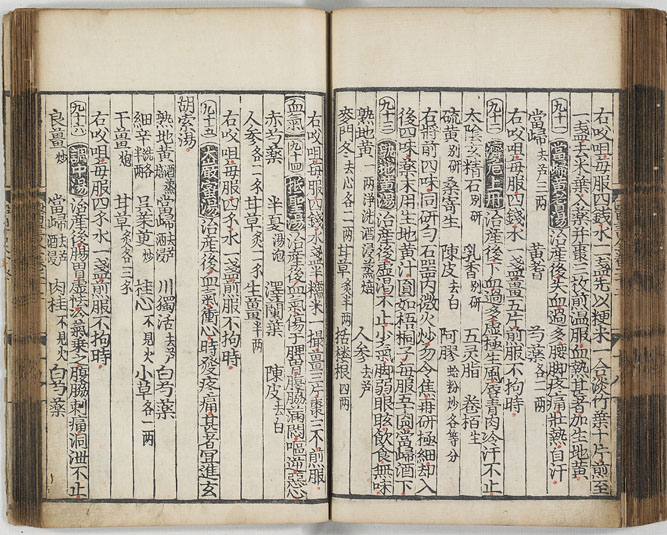 右㕮咀每服四錢水一盞先以粳米一合淡竹葉十片煎至
一盞去米葉入藥并棗三枚煎溫服血熱甚者加生地黃
九十一 當歸黃芪湯 治產後失血過多腰脚疼痛壯熱自汗
當歸去芦三兩 黃芪 芍藥各二兩
右㕮咀每服四錢水一盞薑五片煎服不拘時
九十二 濟危上丹 治產後下血過多虛極生風唇青肉冷汗不止
太陰玄精石別研 乳香別研 五灵脂 卷栢生
硫黃別研 桑寄生 陳皮去白 阿膠蛤粉炒各等分
右將前四味同研勻石器內微火炒勿令焦再研極細却入
後四味藥末用生地黃汁圓如梧桐子每服五十圓當歸酒下
九十三 熟地黃湯 治產後虛渴不止少氣脚弱眼眩飲食無味
熟地黃一兩淨洗酒浸蒸焙 人參去芦
麥門冬去心各二兩 甘草炙半兩 括樓根四兩
右㕮咀每服四錢水盞半糯米一撮薑三片棗三个煎服
血氣 九十四 抵聖湯 治產後血氣傷于脾胃腹脇滿悶嘔逆惡心
赤芍藥 半夏湯泡 澤蘭葉 陳皮去白
人參各一錢 甘草炙一錢 生薑半兩
右㕮咀每服四錢水一盞煎服不拘時
九十五 大嚴蜜湯 治產後血氣衝心時發疼痛甚者宜進玄
胡索湯
熟地黃酒蒸焙 當歸去芦酒浸 川獨活去芦 白芍藥
細辛洗各半兩 吳茱萸炒 桂心不見火 小草各一兩
干薑炮 甘草炙各三錢
右㕮咀每服四錢水一盞煎服不拘時
九十六 調中湯 治產後腸胃虛怯冷氣乘之腹脇刺痛洞泄不止
良薑炒 當歸去芦酒浸 肉桂不見火 白芍藥